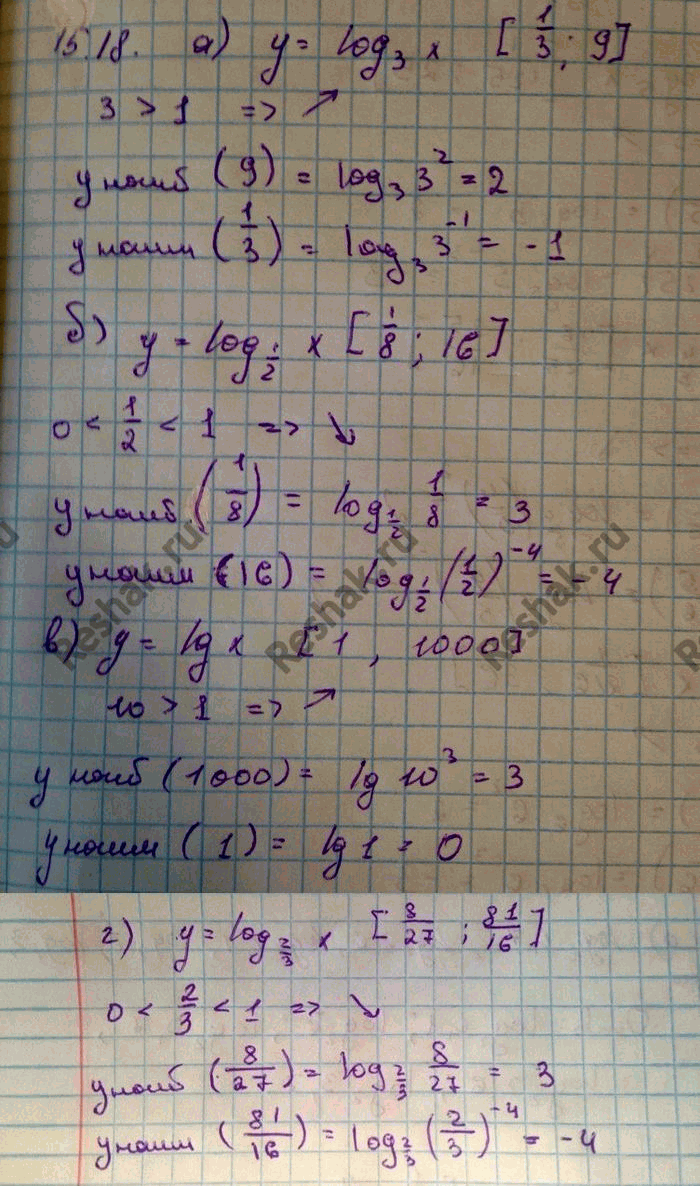 15.18. а) y = log₃ x [1/3; 9]
3 > 1 => ↗
y наиб (9) = log₃ 3² = 2
y наим (1/3) = log₃ 3⁻¹ = -1
б) y = log_{1/2} x [1/8; 16]
0 < 1/2 < 1 => ↘
y наиб. (1/8) = log_{1/2} 1/8 = 3
y наим (16) = log_{1/2} (1/2)⁻⁴ = -4
в) y = lg x [1, 1000]
10 > 1 => ↗
y наиб (1000) = lg 10³ = 3
y наим (1) = lg 1 = 0
г) y = log_{2/3} x [8/27; 81/16]
0 < 2/3 < 1 => ↘
y наиб (8/27) = log_{2/3} 8/27 = 3
y наим (81/16) = log_{2/3} (2/3)⁻⁴ = -4
Reshak.ru
Reshak.ru
Reshak.ru